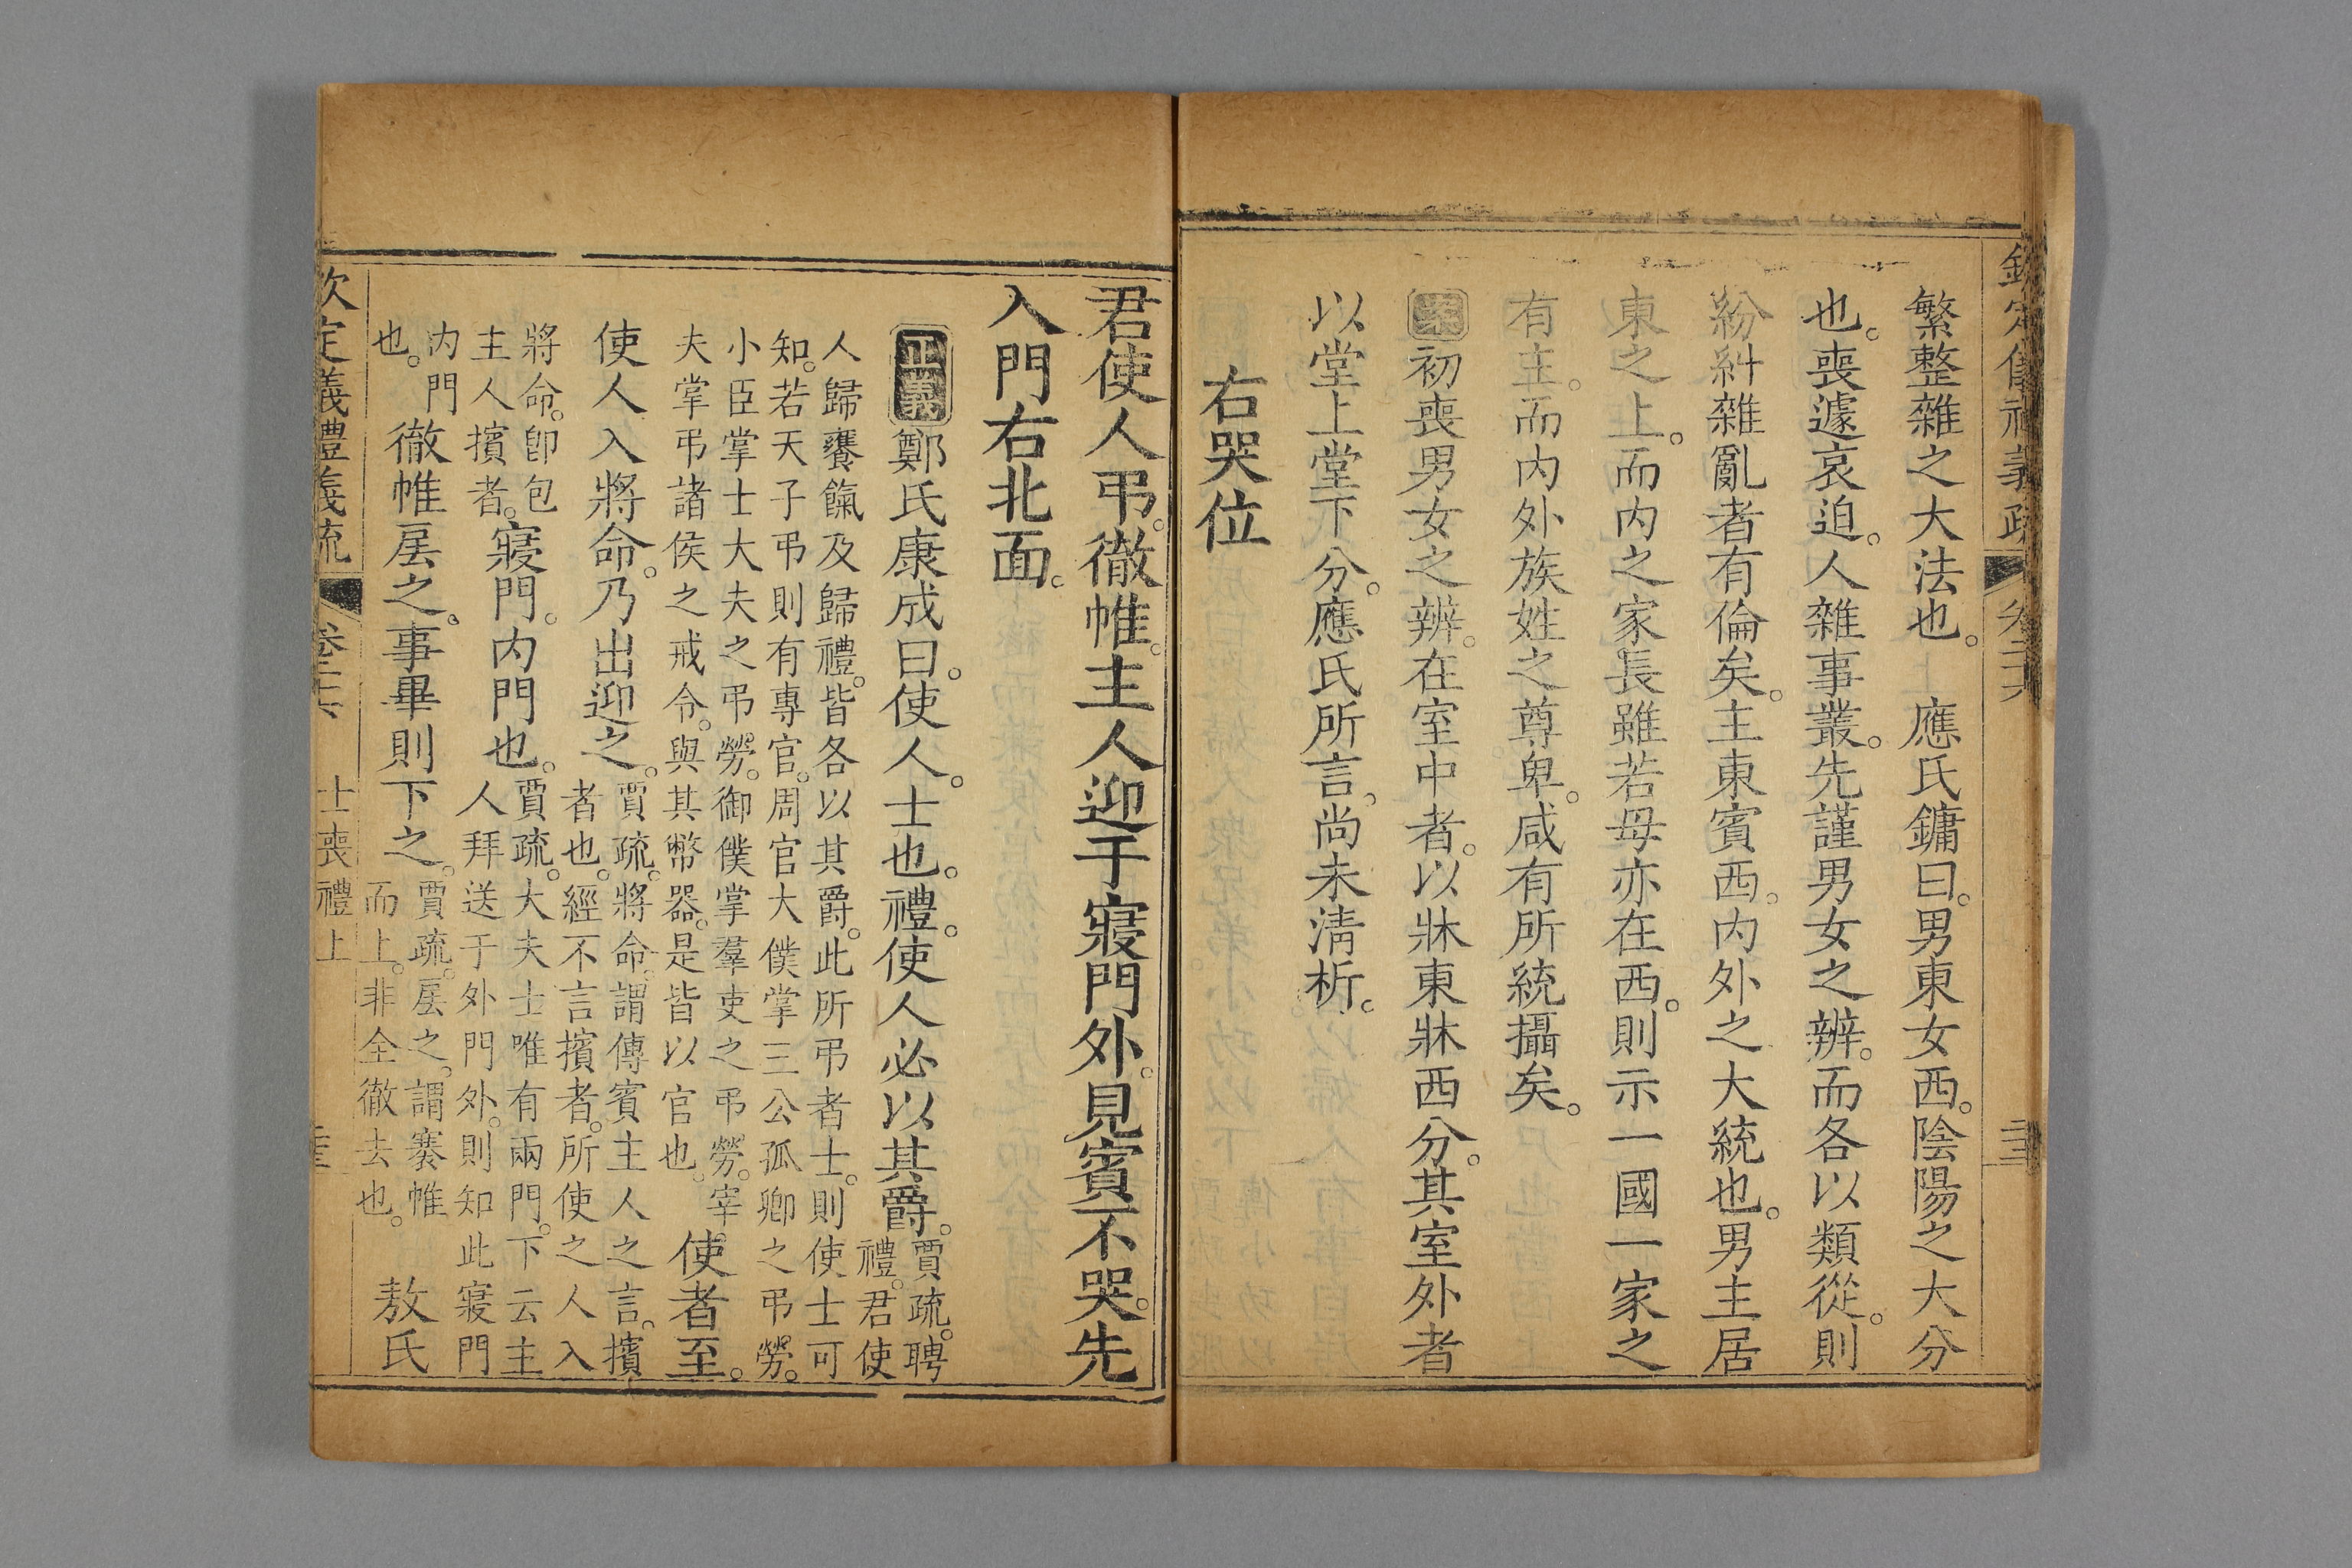 繁整雜之大法也。　應氏鏞曰。男東女西。陰陽之大分
也。喪遽哀迫。人雜事叢。先謹男女之辨。而各以類從。則
紛糾雜亂者有倫矣。主東賓西。内外之大統也。男主居
東之上。而内之家長雖若母亦在西。則示一國一家之
有主。而内外族姓之尊卑。咸有所統攝矣。
案初喪男女之辨。在室中者。以牀東牀西分。其室外者
以堂上堂下分。應氏所言。尚未清析。
右哭位
君使人弔。徹帷。主人迎于寢門外。見賓不哭。先
入門右北面。
正義鄭氏康成曰。使人。士也。禮。使人必以其爵。賈疏。聘
禮。君使
人歸饔餼及歸禮。皆各以其爵。此所弔者士。則使士可
知。若天子弔則有專官。周官大僕掌三公孤卿之弔勞。
小臣掌士大夫之弔勞。御僕掌羣吏之弔勞。宰
夫掌弔諸侯之戒令。與其幣器。是皆以官也。使者至。
使人入將命。乃出迎之。賈疏。將命。謂傳賓主人之言。擯
者也。經不言擯者。所使之人入
將命。卽包
主人擯者。寢門。内門也。賈疏。大夫士唯有兩門。下云主
人拜送于外門外。則知此寢門
内門
也。徹帷扆之。事畢則下之。賈疏。扆之。謂褰帷
而上。非全徹去也。敖氏
欽定儀禮義疏　卷二十六　士喪禮上